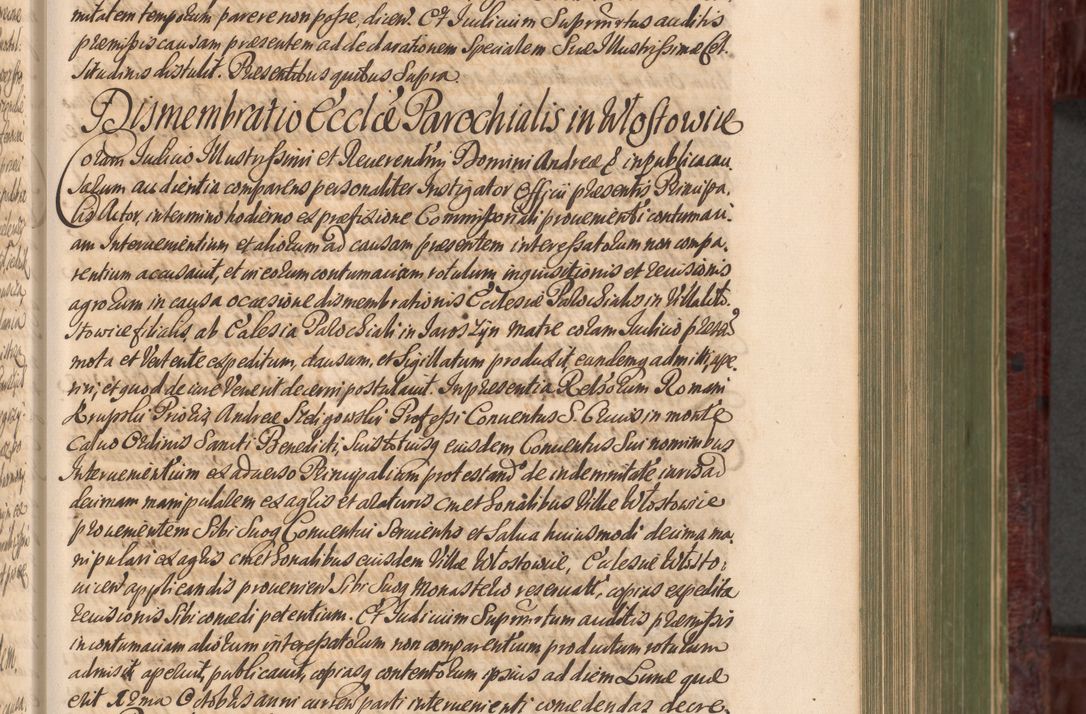 mitatem temporum parere non posse, dicen. Et Judicium Supramrtus auditis
præmissis causam præsentem ad declarationem Specialem Suæ Illustrissimæ Cel
situdinis distulit. Præsentibus quibus Supra
Dismembratio Ecclæ Parochialis in Włostowice
Coram Judicio Illustrissimi et Reuerendssimi Domini Andreæ & in publica cau
sarum audientia comparens personaliter Instigator Officii præsentis Principa.
lis Actor, in termino hodierno ex præfixione Commissoriali prouementi contumaci:
am Interuementium et aliorum ad causam præsentem interessatorum non compa,
rentium accusauit, et in eorum contumaciam rotulum inquisitionis et reuisionis
agrorum in causa occasione dismembrationis Ecclesiæ Parochialis in Villa Wło.
stowice filialis, ab Ecclesia Parochiali in Jaroszyn matre coram Judicio præsenti
mota et Vertente expeditum, clausum, et Sigillatum produxit, eundemq admitti, ape
riri, et quod de iure Venerit decerni postulauit. In præsentia Relsorum Romani
Krupski Prioris, Andreæ Szdzigowski Professi Conuentus S. Crucis, in monte
Caluo Ordinis Sancti Benedicti, Suis totiusq eiusdem Conuentus Sui nominibus
Interuementium ex aduerso Principalium protestand de indemnitate iuris ad
decimam manipulalem ex agris et araturis Cmetonalibus Villæ Włostowice
prouementem Sibi Suoq Conuentui Seruientis et Salua huiusmodi decima ma,
nipulari ex agris cmetonalibus eiusdem Villæ Włostowice, Ecclesiæ Włosto,
uicen applicandis prouenien Sibi Suoq Monasterio reseruati, copias expedita
reuisionis Sibi concedi petentium. Et Judicium Supramrtum auditis, præmissis
in contumaciam aliorum interessatorum non comparentium productum rotulum
admisit aperuit, publicauit, copiasq contentorum ipsius ad diem Lunæ quæ
erit Xma Octobris anni curren parti interuenienti concedendas decre,